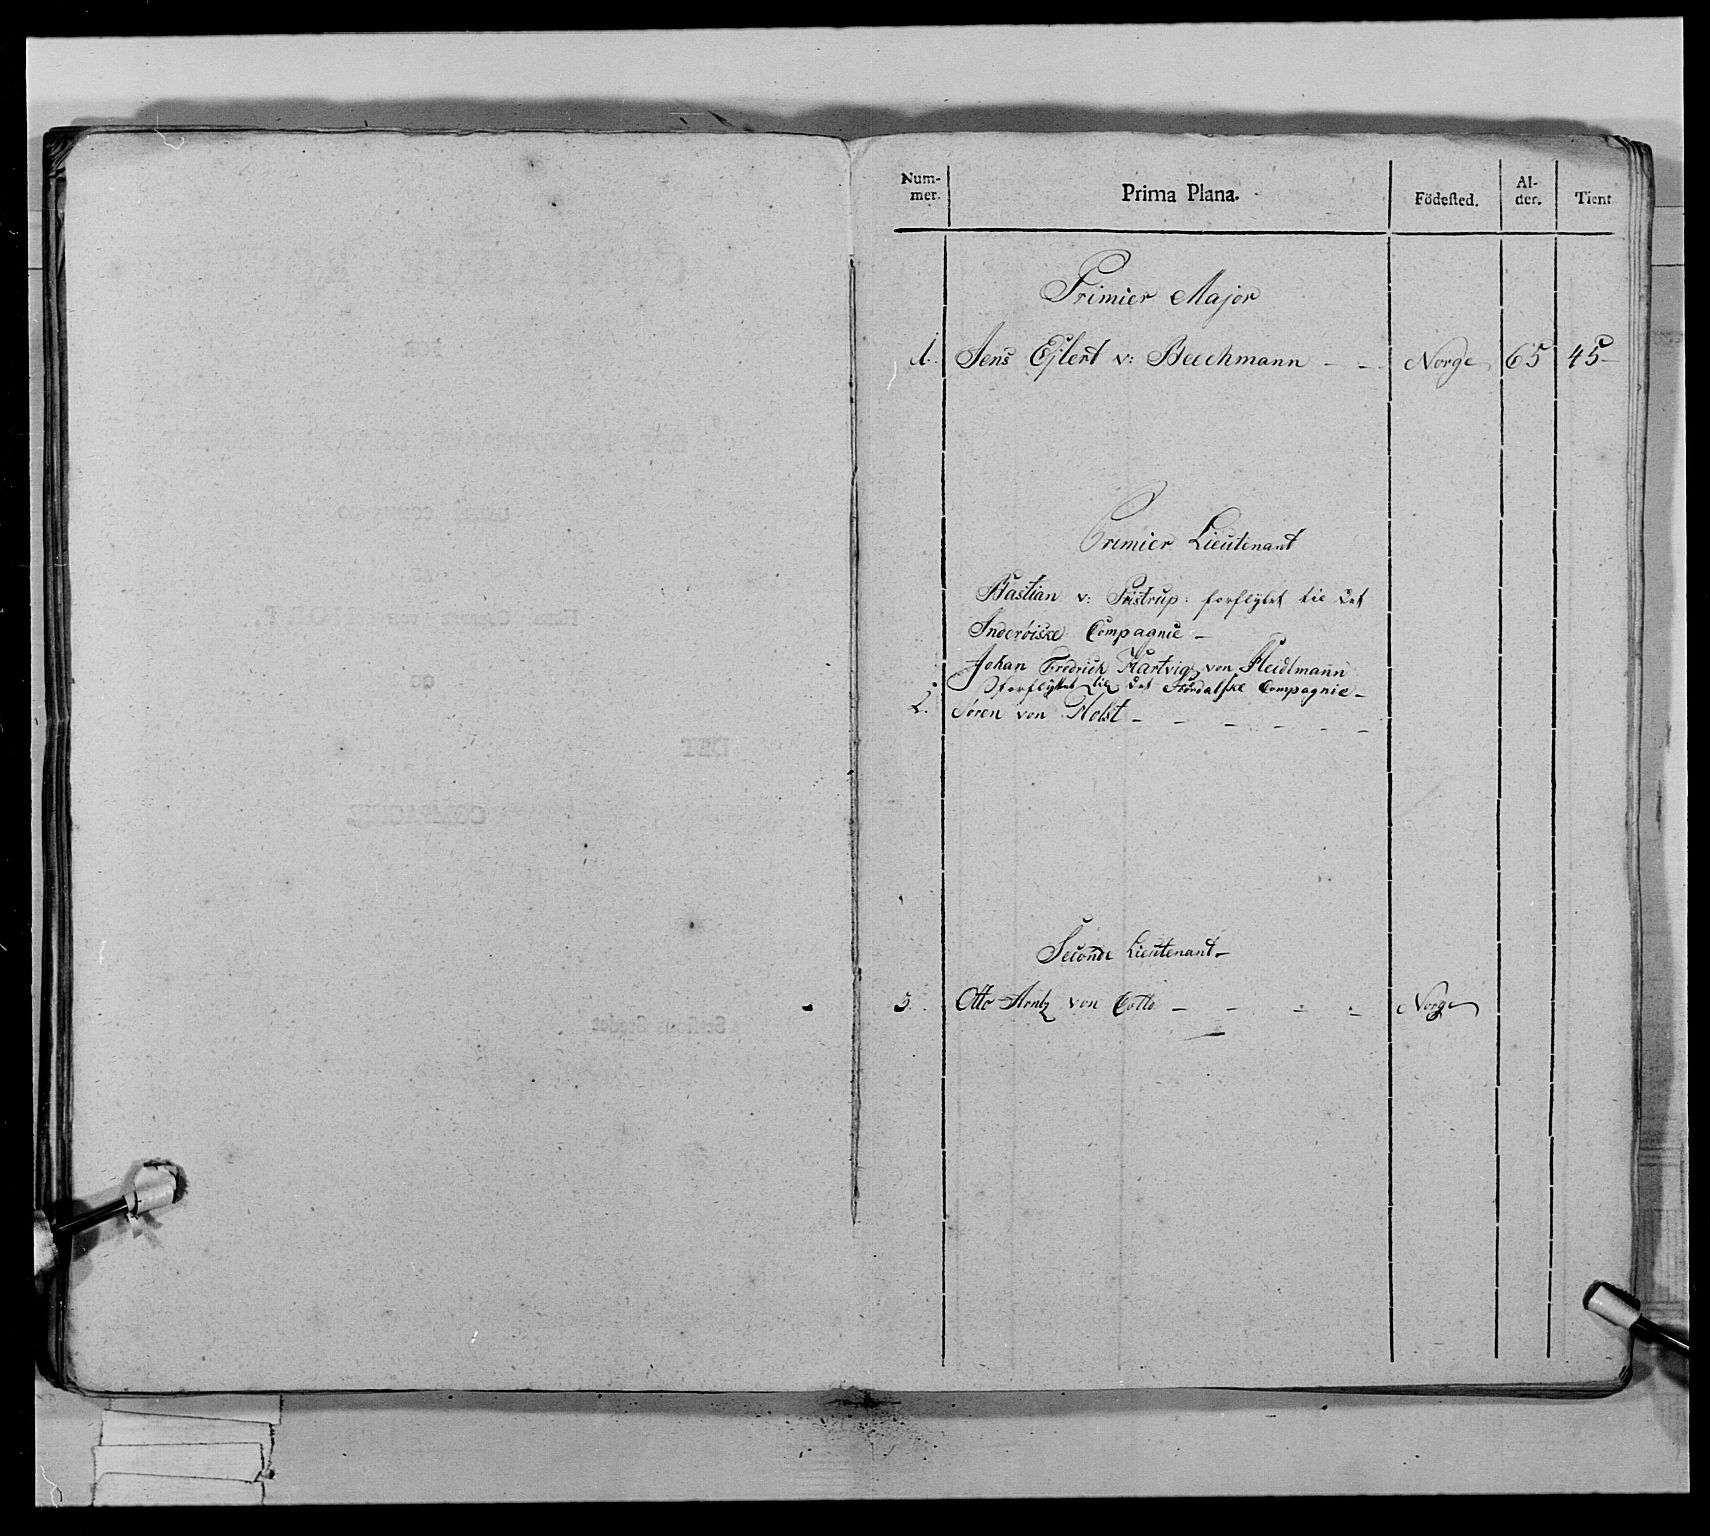 Num-
mer. Prima Plana. Födested. Al-
der. Tient
Primier Major
1. Jens Ejlert v: Beechmann - - Norge 65 45-
Primier Lieutenant
Bastian v: Pristrup: forflÿtet til det
Inderöiske Compagnie -
Johan Fredrich Hartvig von Heidlmann
forflÿttet til det Stördalske Compagnie -
2. Sören von Holst - - - - - -
Seconde Lieutenant -
3. Otto Arntz von Cotto - - - - Norge